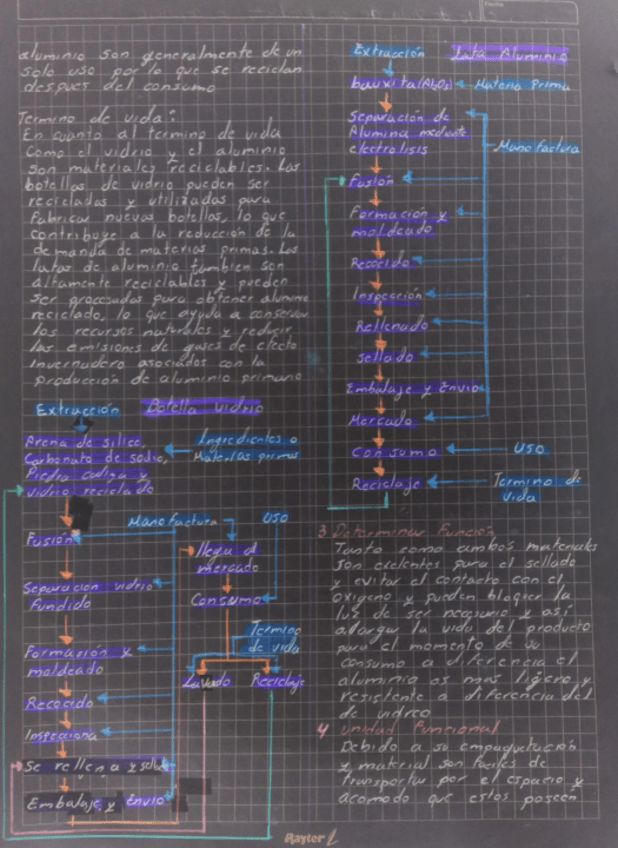 aluminio son generalmente de un
solo uso por lo que se reciclan
despues del consumo
Termino de vida:
En cuanto al termino de vida
como el vidrio y el aluminio
son materiales reciclables. Las
botellas de vidrio pueden ser
recicladas y utilizadas para
fabricar nuevas botellas, lo que
contribuye a la reducción de la
demanda de materias primas. Las
latas de aluminio tambien son
altamente reciclables y pueden
ser procesadas para obtener aluminio
reciclado, lo que ayuda a conservar
los recursos naturales y reducir
las emisiones de gases de efecto
Invernadero asociados con la
producción de aluminio primario
Extracción Botella vidrio
Arena de silice,
Carbonato de sodio,
Piedra caliza y
vidrio reciclado
Ingredientes o
Materias primas
Fusión
Manofactura
USO
Separacion vidrio
fundido
Formación y
moldeado
Recocido
Inspeciona
Se rellena y sella
Embalaje y Envio
llega al
mercado
Consumo
Termino
de vida
Lavado Reciclaje
Extracción Lata Aluminio
bauxita(Al2O3) Materia Prima
Separación de
Alumina mediante
electrolisis
Manofactura
Fusión
Formación y
moldeado
Recocido
Inspección
Rellenado
Sellado
Embalaje y Envio
Mercado
Consumo USO
Reciclaje Termino de
vida
3 Determinar Función
Tanto como ambos materiales
son exelentes para el sellado
y evitar el contacto con el
oxigeno y pueden bloquear la
luz de ser necesario y así
alargar la vida del producto
para el momento de su
consumo a diferencia el
aluminio es mas ligero y
resistente a diferencia del
de vidreo
4 unidad funcional
Debido a su empaquetación
y material son faciles de
transportar por el espacio y
acomodo que estos poseen
Rayter